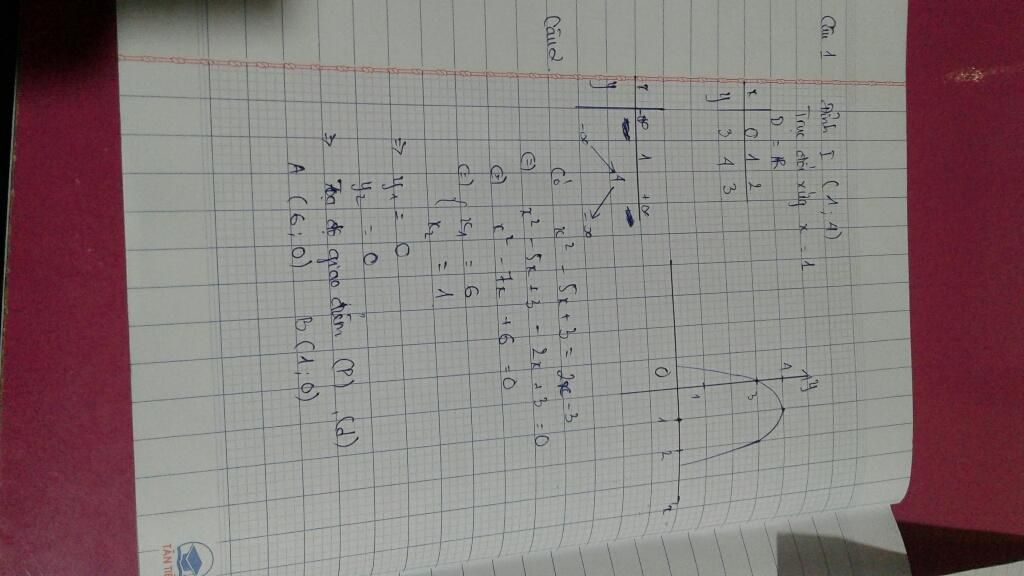 Câu 1
Đỉnh I (1; 4)
Trục đối xứng x = 1
D = R
x 0 1 2
y 3 4 3
x -∞ 1 +∞
y -∞ 4 -∞
y
4
3
1
0 1 2 x
Câu 2.
Có x² - 5x + 3 = 2x - 3
⇔ x² - 5x + 3 - 2x + 3 = 0
⇔ x² - 7x + 6 = 0
⇔ { x₁ = 6
x₂ = 1
⇒ y₁ = 0
y₂ = 0
⇒ Tọa độ giao điểm (P), (d)
A (6; 0) B (1; 0)
TÂN TI